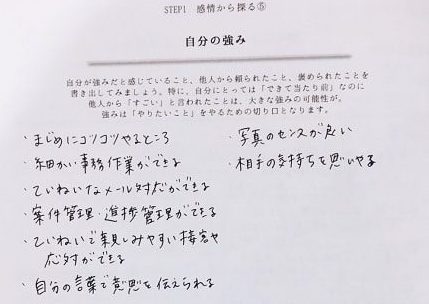 STEP1 感情から探る⑤
自分の強み
自分が強みだと感じていること、他人から頼られたこと、褒められたことを
書き出してみましょう。特に、自分にとっては「できて当たり前」なのに
他人から「すごい」と言われたことは、大きな強みの可能性が。
強みは「やりたいこと」をやるための切り口となります。
・まじめにコツコツやるところ
・細かい事務作業ができる
・ていねいなメール対応ができる
・案件管理・進捗管理ができる
・ていねいで親しみやすい接客や
応対ができる
・自分の言葉で意思を伝えられる
・写真のセンスが良い
・相手の気持ちを思いやる